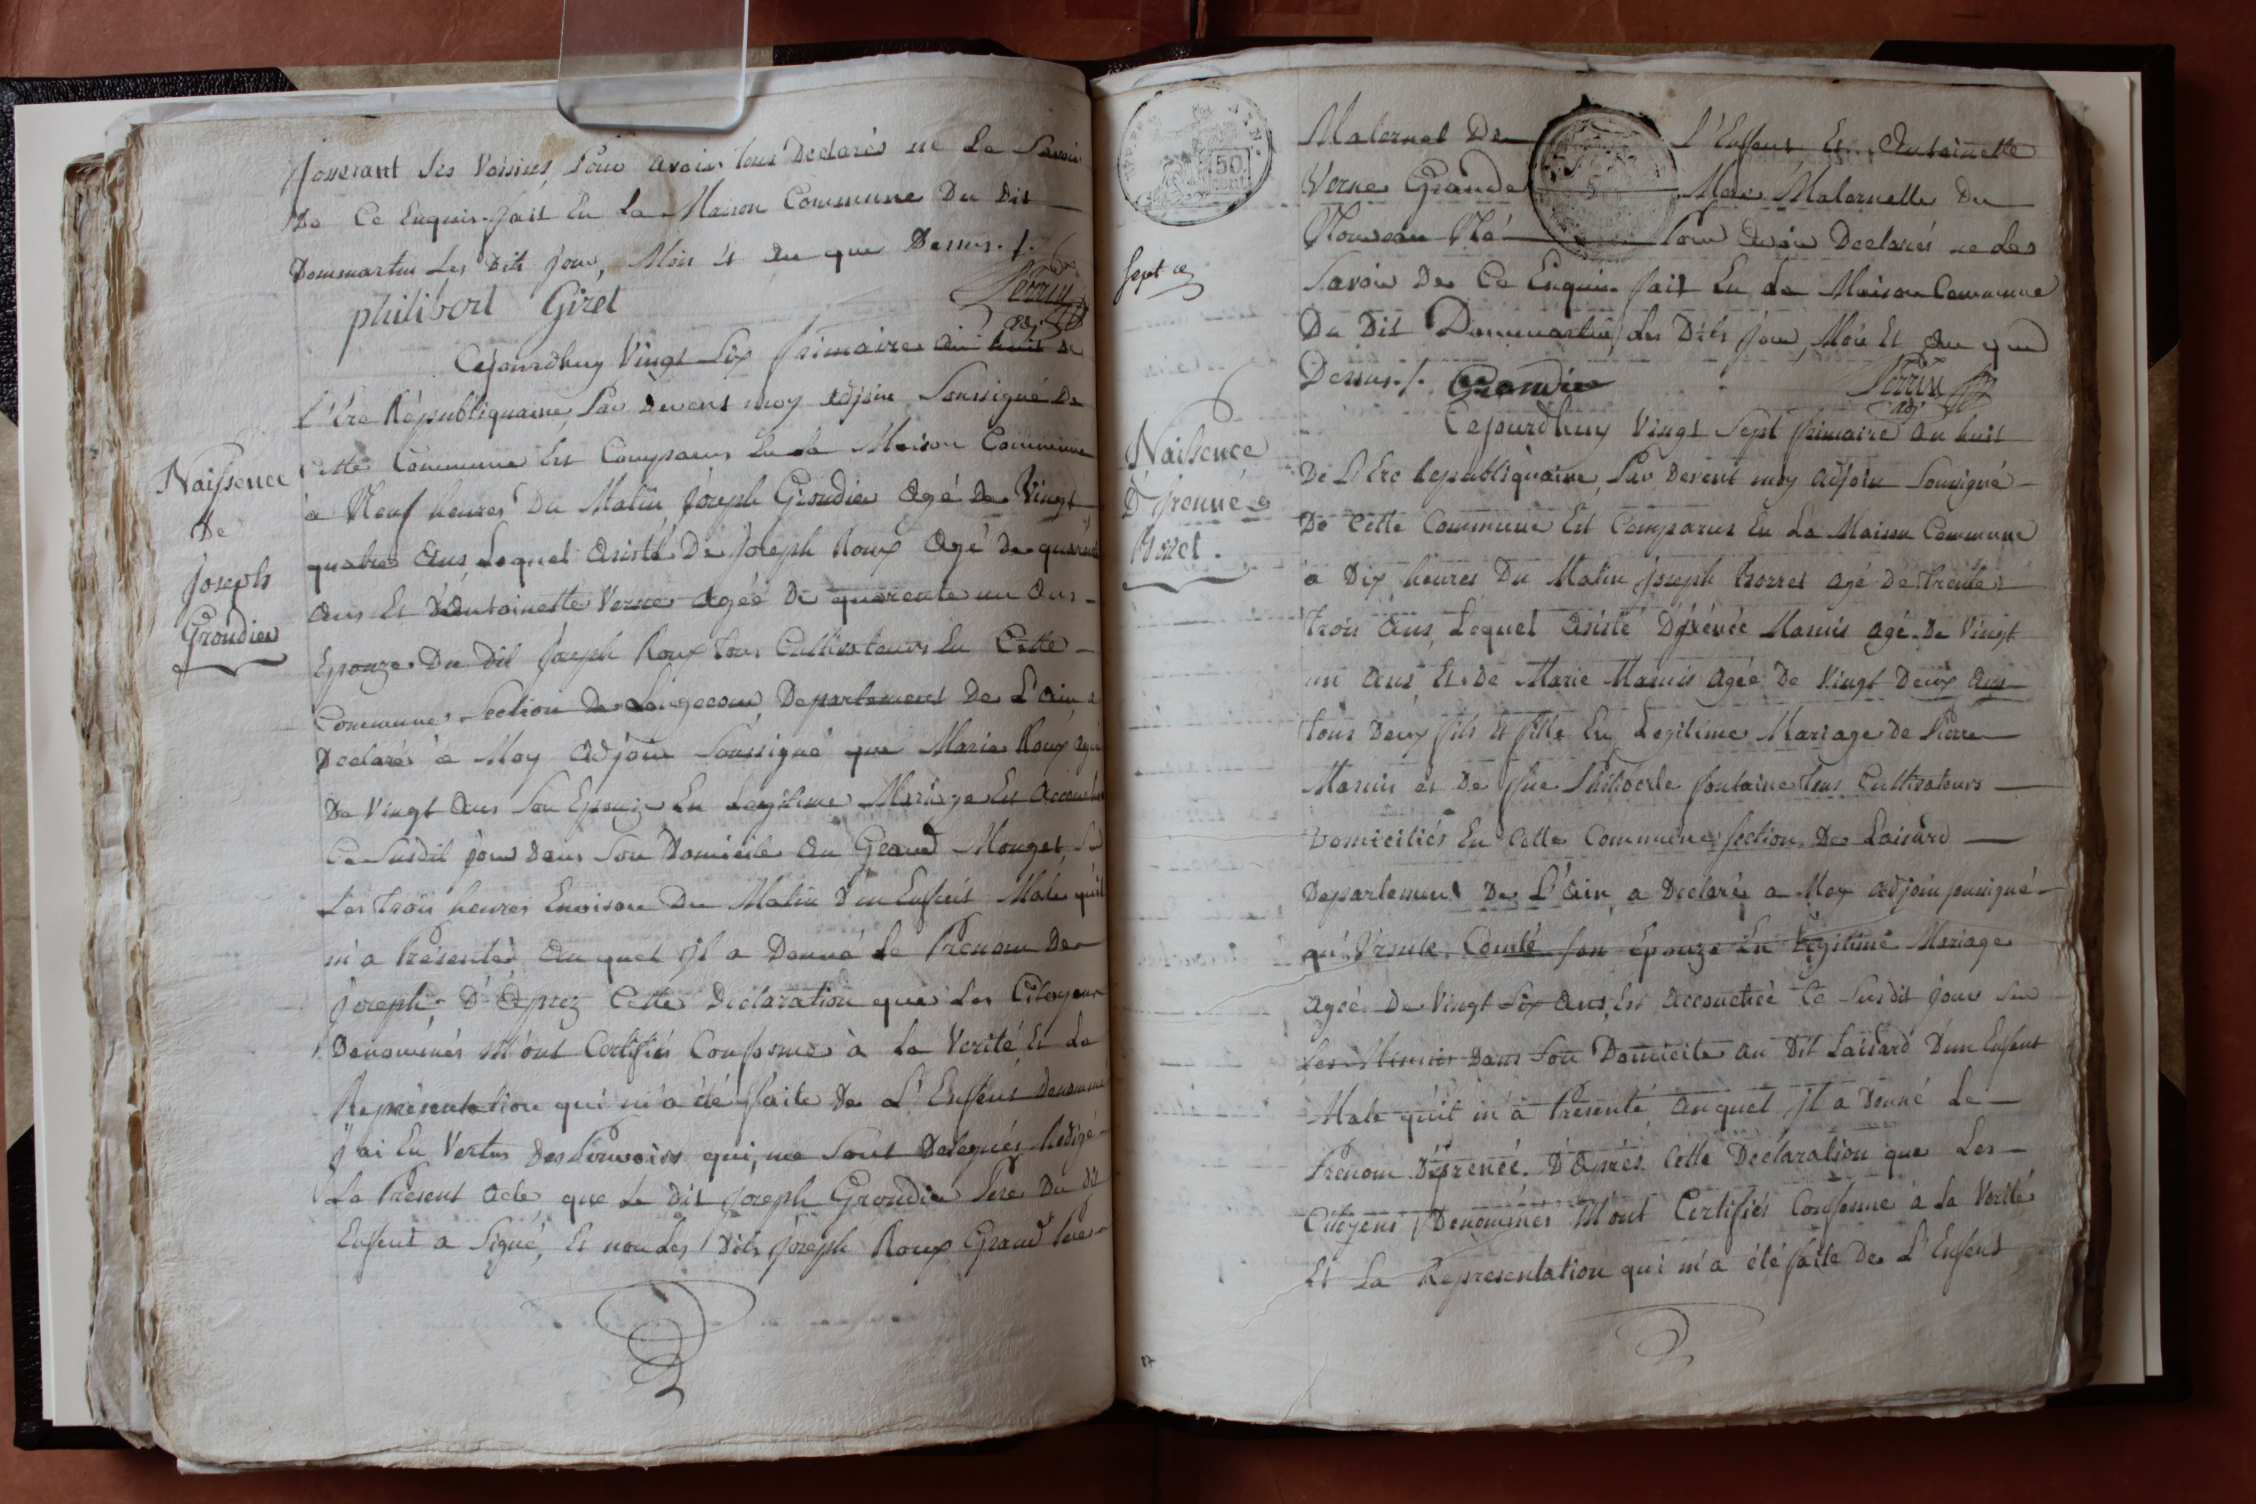 ses Voisins, Pour avoir tous Declarés ne Le Savoir
De Ce Enquis. fait En La Maison Commune Du Dit
Dommartin Les Dits jour, Mois Et An que Dessus ./.
philibert Giret
Perrin
adj
Cejourdhuy Vingt Six frimaire an huit de
L'Ere Républiquaine, Par devent moy adjoin Soussigné De
Cette Commune Est Comparus En La Maison Commune
à Neuf heures Du Matin Joseph Grondier Agé De Vingt
quatre Ans Lequel Asisté De Joseph Roux Agé De quarente
Ans Et D'Antoinette Verne Agée De quarente un Ans
Epouze Du dit Joseph Roux tous Cultivateurs En Cette
Commune Section De Departement De L'Ain a
Declarés à Moy Adjoin Soussigné que Marie Roux Agée
De Vingt Ans Son Epouze En Legitime Mariage Est Accouchée
Ce Susdit jour Dans Son Domicile Au Grand Mouget, Sur
Les trois heures Environ Du Matin D'un Enfent Male qu'il
m'a Présentés Au quel Il a Donné Le Prenom De
Joseph. D'Aprez Cette Declaration que Les Citoyens
Denominés M'ont Certifiés Conforme à La Verité Et La
Représentation qui m'a été faite De L'Enfent denommé
J'ai En Vertus Des Pouvoirs qui me Sont Delegués Redigé
Le Présent Acte que Le dit Joseph Grondier Pere Du dit
Enfent a Signé, Et non Les Dits Joseph Roux Grand Pere
Naissence
De
Joseph
Grondier
50
Sept
Maternel De L'Enfent Et Antoinette
Verne Grande Mere Maternelle Du
Nouveau Né Pour Avoir Declarés ne Les
Savoir De Ce Enquis. fait En La Maison Commune
Du Dit Dommartin, Les Dits jour, Mois Et An que
Dessus ./. Grondier
Perrin
adj
Cejourdhuy Vingt Sept frimaire An huit
De L'Ere Republiquaine, Par Devent moy Adjoin Soussigné
De Cette Commune Est Comparus En La Maison Commune
a Dix heures Du Matin Joseph Agé De trente
trois Ans Lequel Asisté Agé De Vingt
un Ans Et De Marie Agée De Vingt Deux Ans
tous Deux fils Et fille En Legitime Mariage De Pierre
et De fue Philiberte fontaine tous Cultivateurs
Domiciliés En Cette Commune Section De Loisard
Departement De L'Ain, a Declarés a Moy Adjoin soussigné
qu'Ursule Comte Son Epouze En Legitime Mariage
Agée De Vingt Six Ans, Est Accouchée Ce Susdit jour Sur
Les Minuit Dans Son Domicile Au Dit Loisard D'un Enfent
Male qu'il m'a Présenté Auquel Il a Donné Le
Prenom D'Irenné. D'Aprés Cette Declaration que Les
Citoyens Denominés M'ont Certifiés Conforme à La Verité
Et La Representation qui m'a été faite De L'Enfent
Naissence
D'Irenné